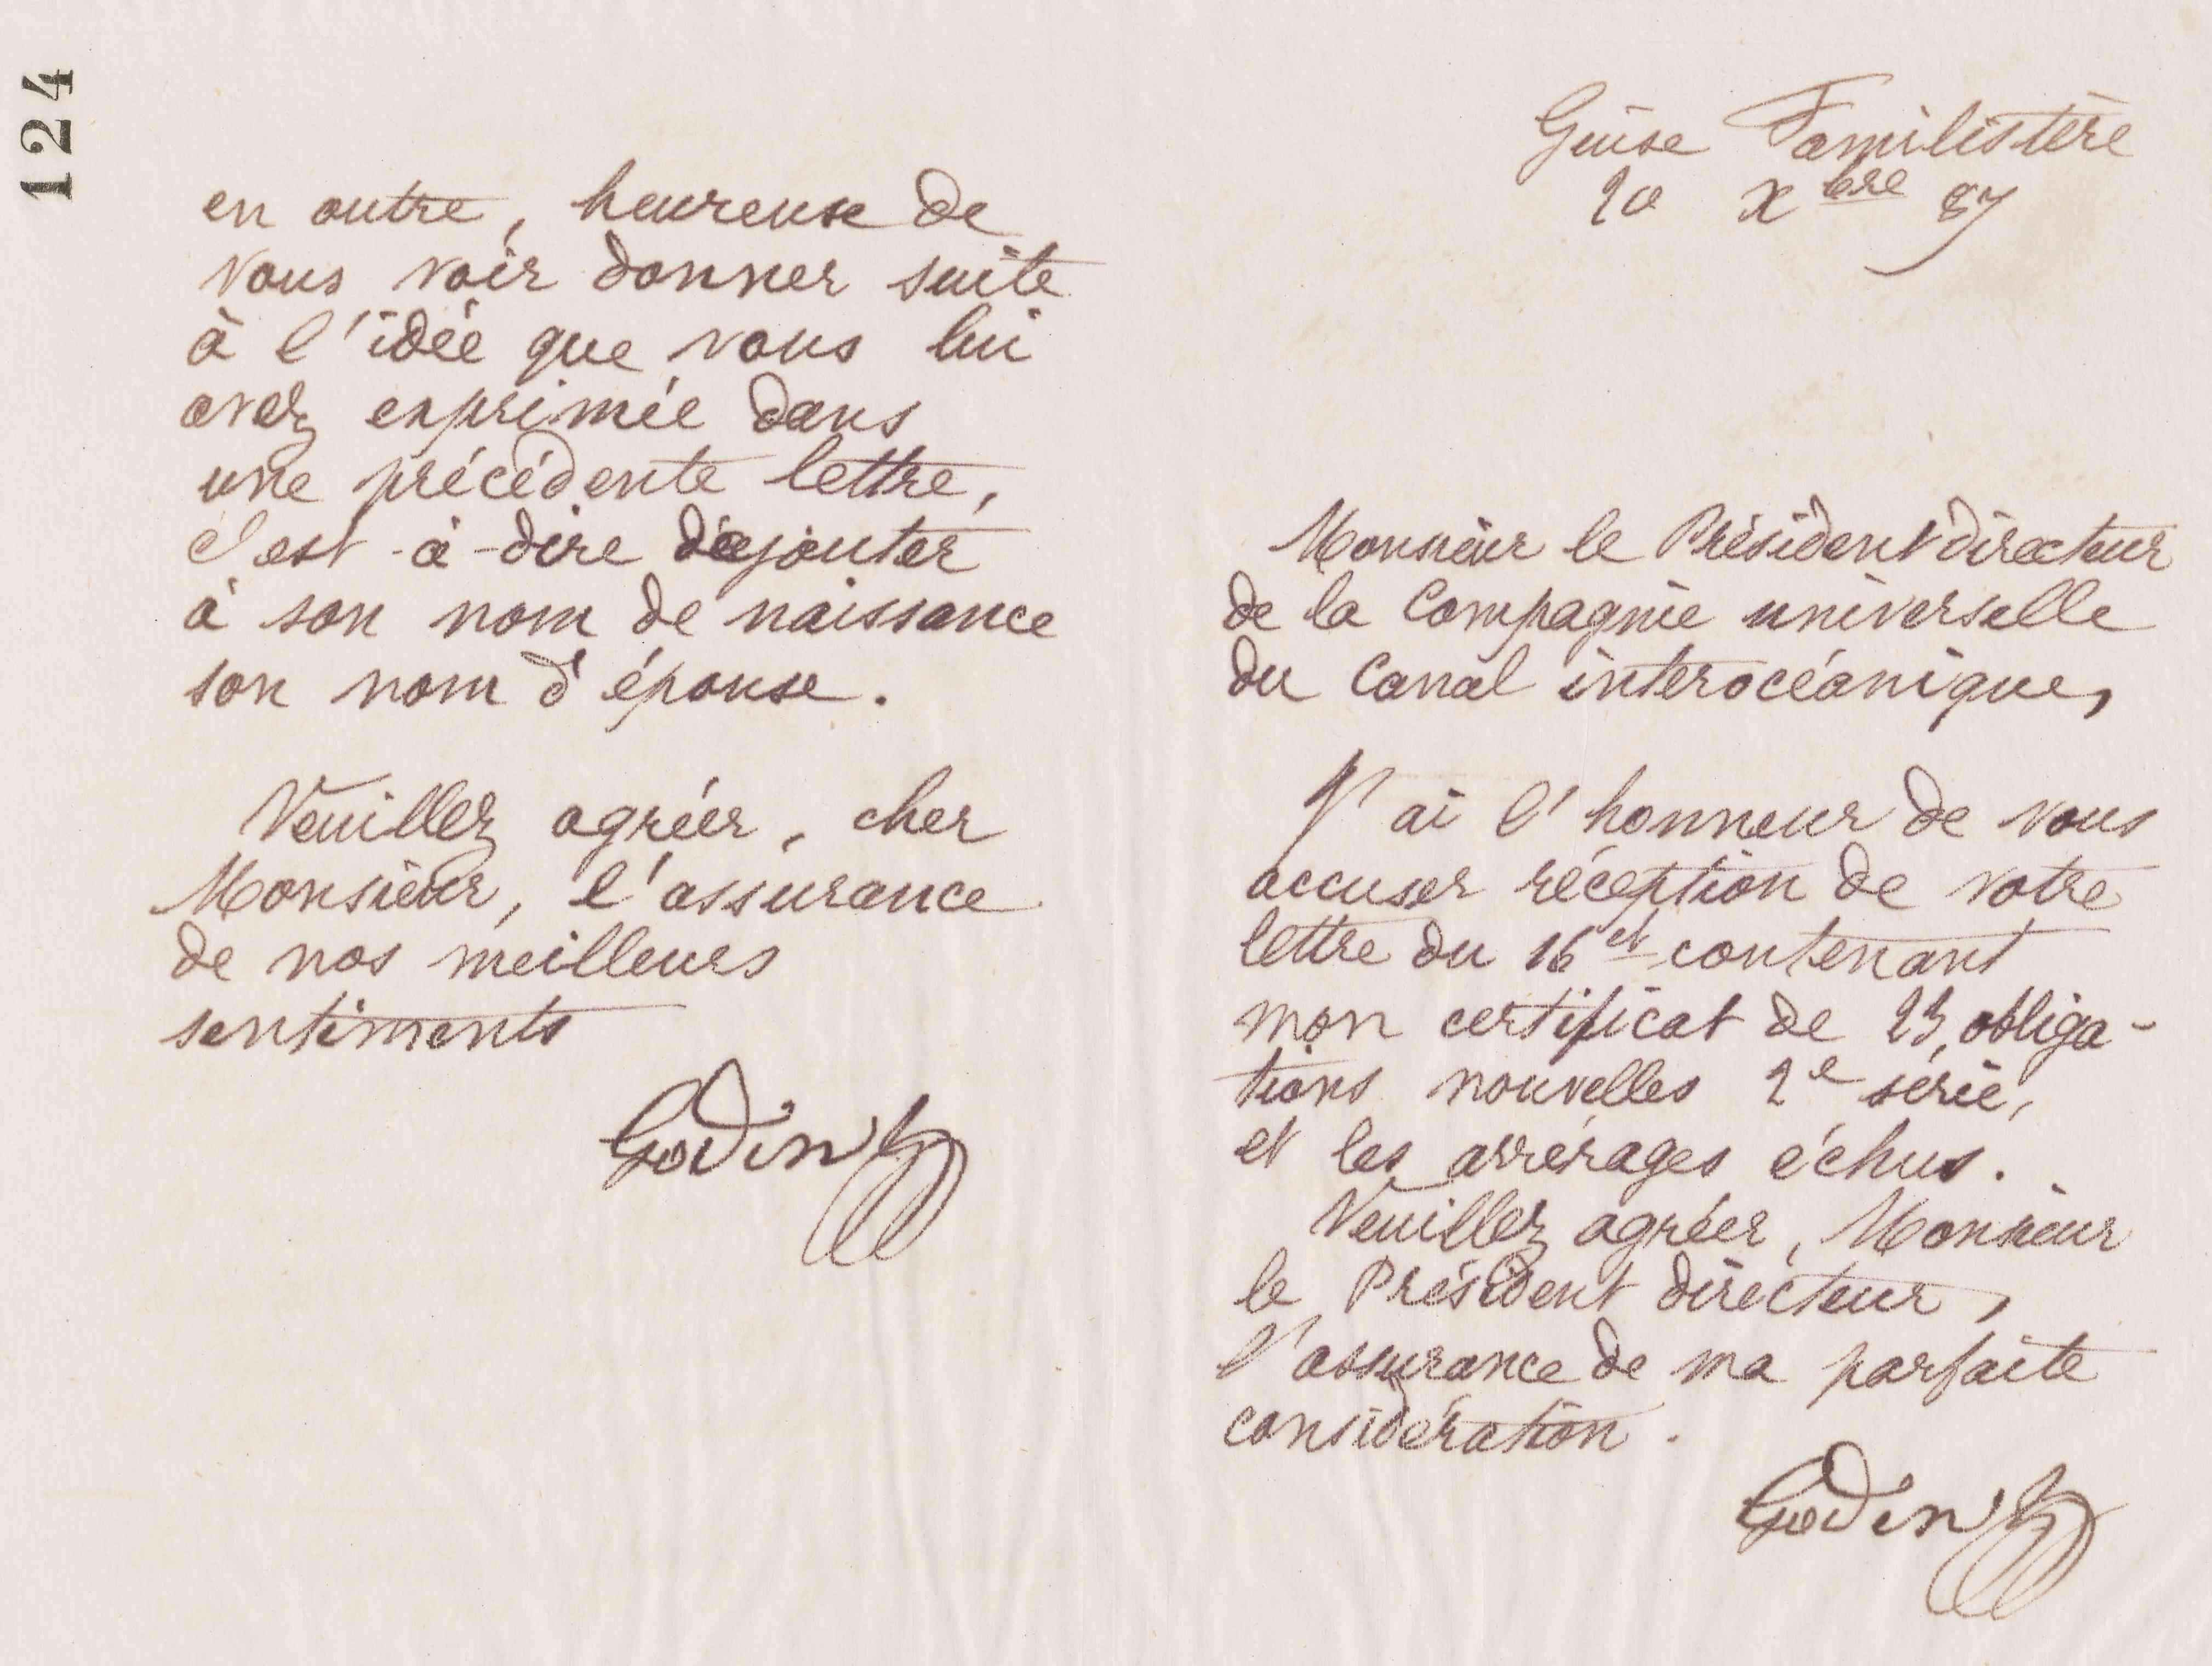 124
en outre, heureuse de
vous voir donner suite
à l'idée que vous lui
avez exprimée dans
une précédente lettre,
c'est-à-dire d'ajouter
à son nom de naissance
son nom d'épouse.
Veuillez agréer, cher
Monsieur, l'assurance
de nos meilleurs
sentiments
Godin
Guise Familistère
20 Xbre 87
Monsieur le Président directeur
de la Compagnie universelle
du Canal interocéanique,
J'ai l'honneur de vous
accuser réception de votre
lettre du 16 ct contenant
mon certificat de 23 obliga-
tions nouvelles 2e série,
et les arrérages échus.
Veuillez agréer, Monsieur
le Président directeur,
l'assurance de ma parfaite
considération.
Godin